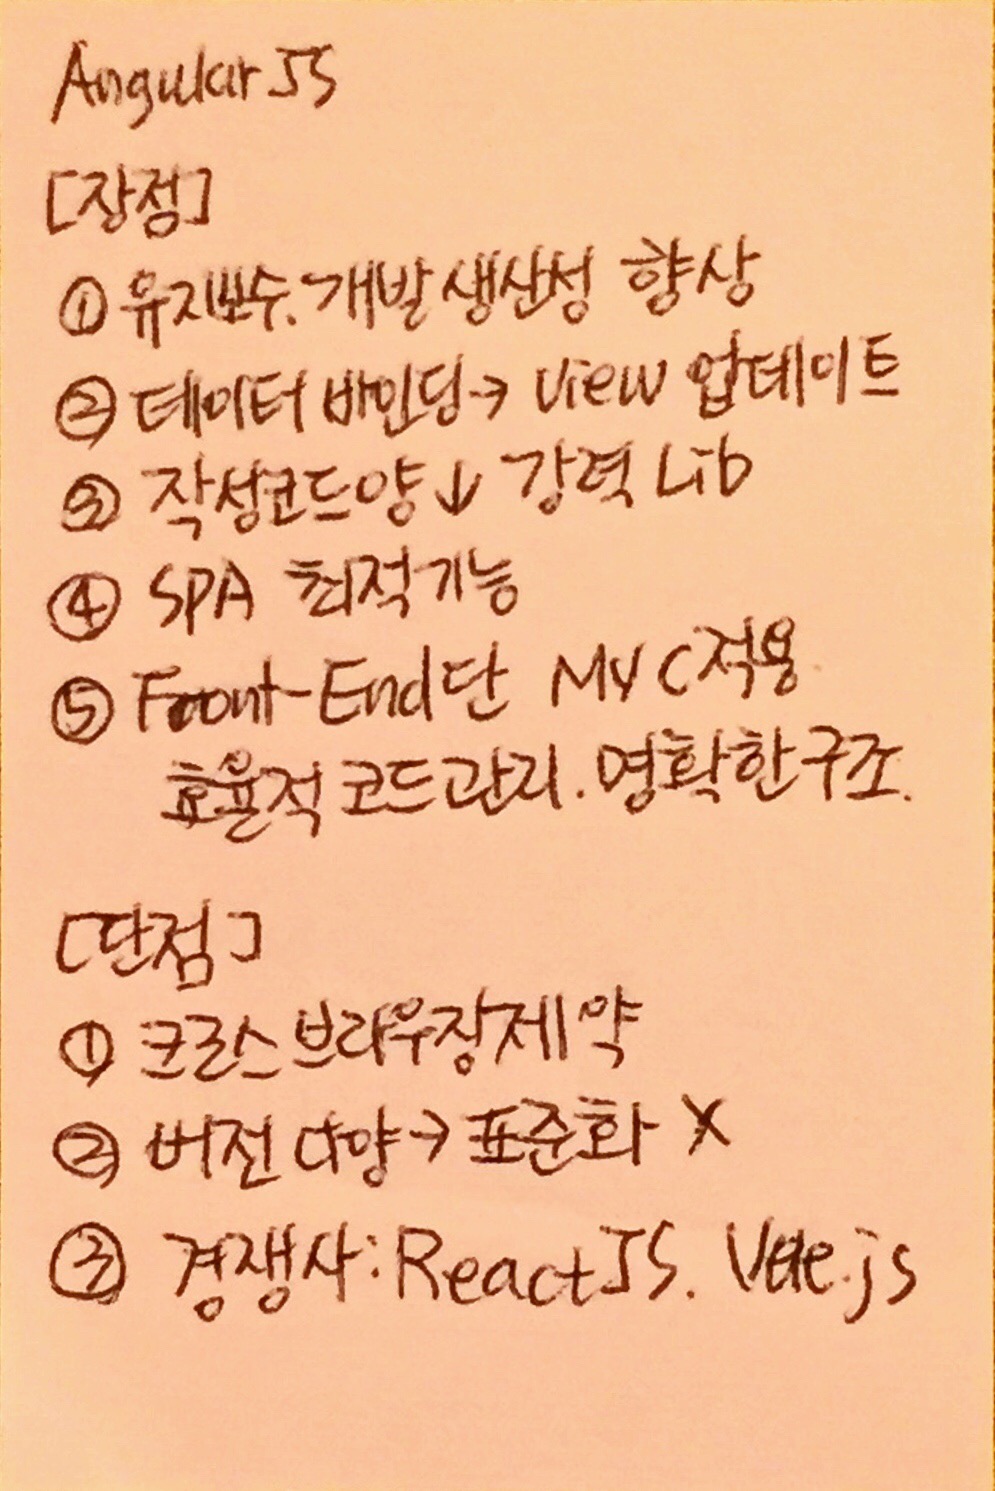 Angular JS
[장점]
① 유지보수. 개발 생산성 향상
② 데이터 바인딩→ View 업데이트
③ 작성코드양↓ 강력 Lib
④ SPA 최적기능
⑤ Front-End단 MVC적용
효율적 코드관리. 명확한구조.
[단점]
① 크로스 브라우장제약
② 버전 다양→ 표준화 X
③ 경쟁사: ReactJS. Vue.js